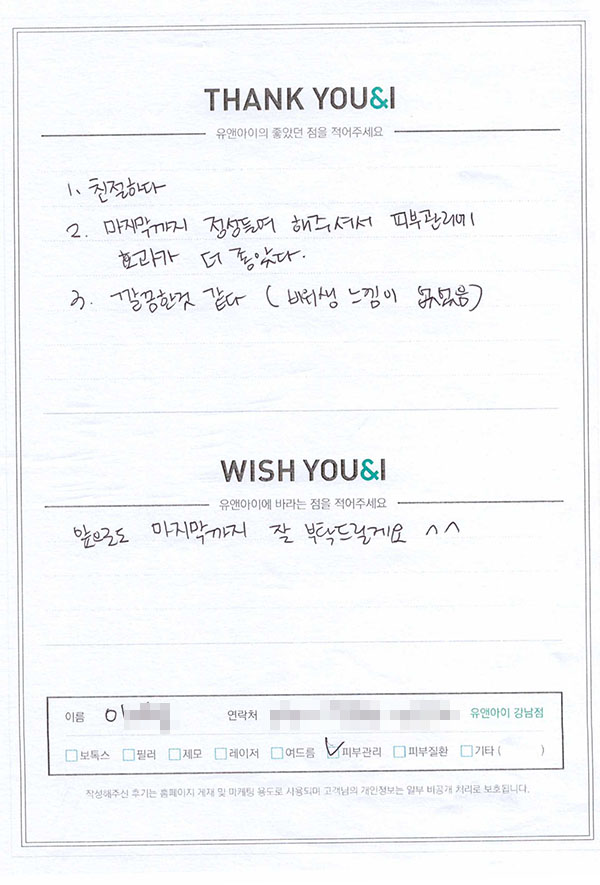 THANK YOU&I
유앤아이의 좋았던 점을 적어주세요
1. 친절하다
2. 마지막까지 정성들여 해주셔서 피부관리에
효과가 더 좋았다.
3. 깔끔한것 같다 (비위생 느낌이 없었음)
WISH YOU&I
유앤아이에 바라는 점을 적어주세요
앞으로도 마지막까지 잘 부탁드릴게요 ^^
이름 이 연락처 유앤아이 강남점
보톡스 필러 제모 레이저 여드름 피부관리 피부질환 기타 ( )
작성해주신 후기는 홈페이지 게재 및 마케팅 용도로 사용되며 고객님의 개인정보는 일부 비공개 처리로 보호됩니다.